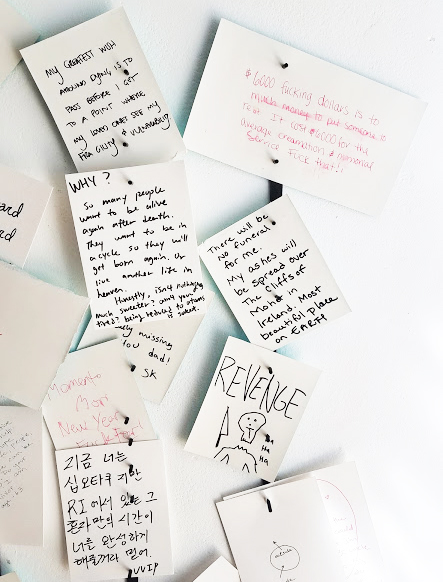 MY GREATEST WISH
AROUND DYING IS TO
PASS BEFORE I GET
TO A POINT WHERE
MY LOVED ONES SEE MY
FRAGILITY & VULNERABILITY
$6000 fucking dollars is to
much money to put someone to
rest. It cost $6000 for the
average creamation & memorial
Service FUCK that!!
WHY?
So many people
want to be alive
again after death.
They want to be in
a cycle so they will
get born again. Or
live another life in
heaven.
Honestly, isn't nothingness
much sweeter? Aren't you
tired? being reduced to atoms
is sweet.
There will be
no funeral
for me.
My ashes will
be spread over
The Cliffs of
Mohr in
Ireland. Most
beautiful place
on EARTH
missing
you dad!
SK
REVENGE
HA
HA
Momento
Mori
New Year
지금 너는
십오타쿠지만
RI에서 있는 그
혼자만의 시간이
너를 완성하게
해줄거라 믿어.
VVIP